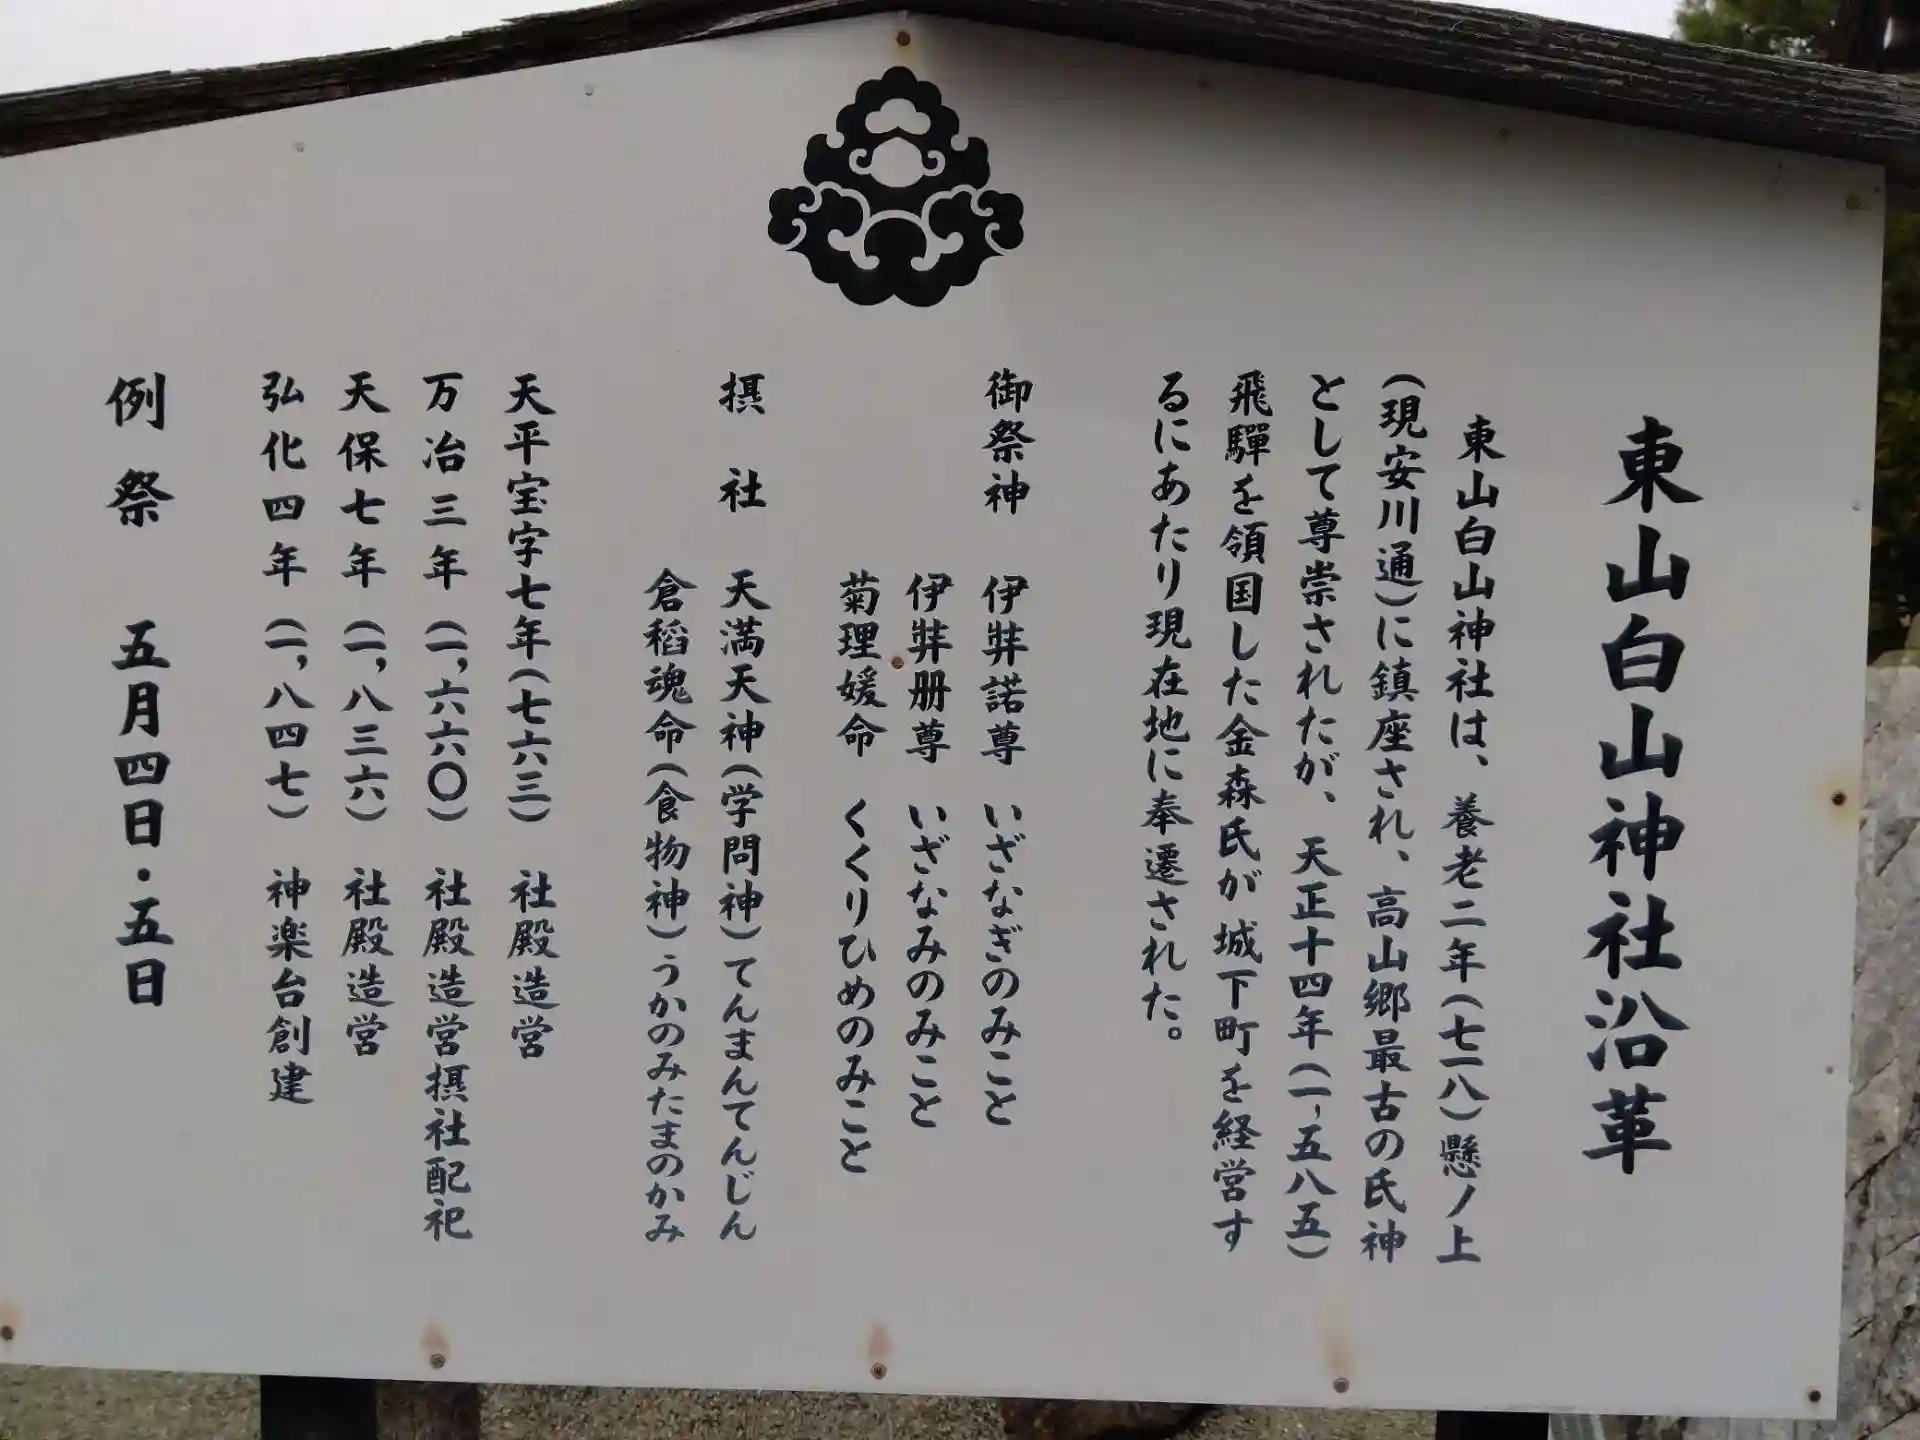 東山白山神社沿革
東山白山神社は、養老二年(七一八)懸ノ上
(現安川通)に鎮座され、高山郷最古の氏神
として尊崇されたが、天正十四年(一、五八五)
飛驒を領国した金森氏が城下町を経営す
るにあたり現在地に奉遷された。
御祭神 伊弉諾尊 いざなぎのみこと
伊弉册尊 いざなみのみこと
菊理媛命 くくりひめのみこと
摂社 天満天神(学問神)てんまんてんじん
倉稻魂命(食物神)うかのみたまのかみ
天平宝字七年(七六三) 社殿造営
万治三年(一,六六〇) 社殿造営摂社配祀
天保七年(一,八三六) 社殿造営
弘化四年(一,八四七) 神楽台創建
例祭 五月四日・五日